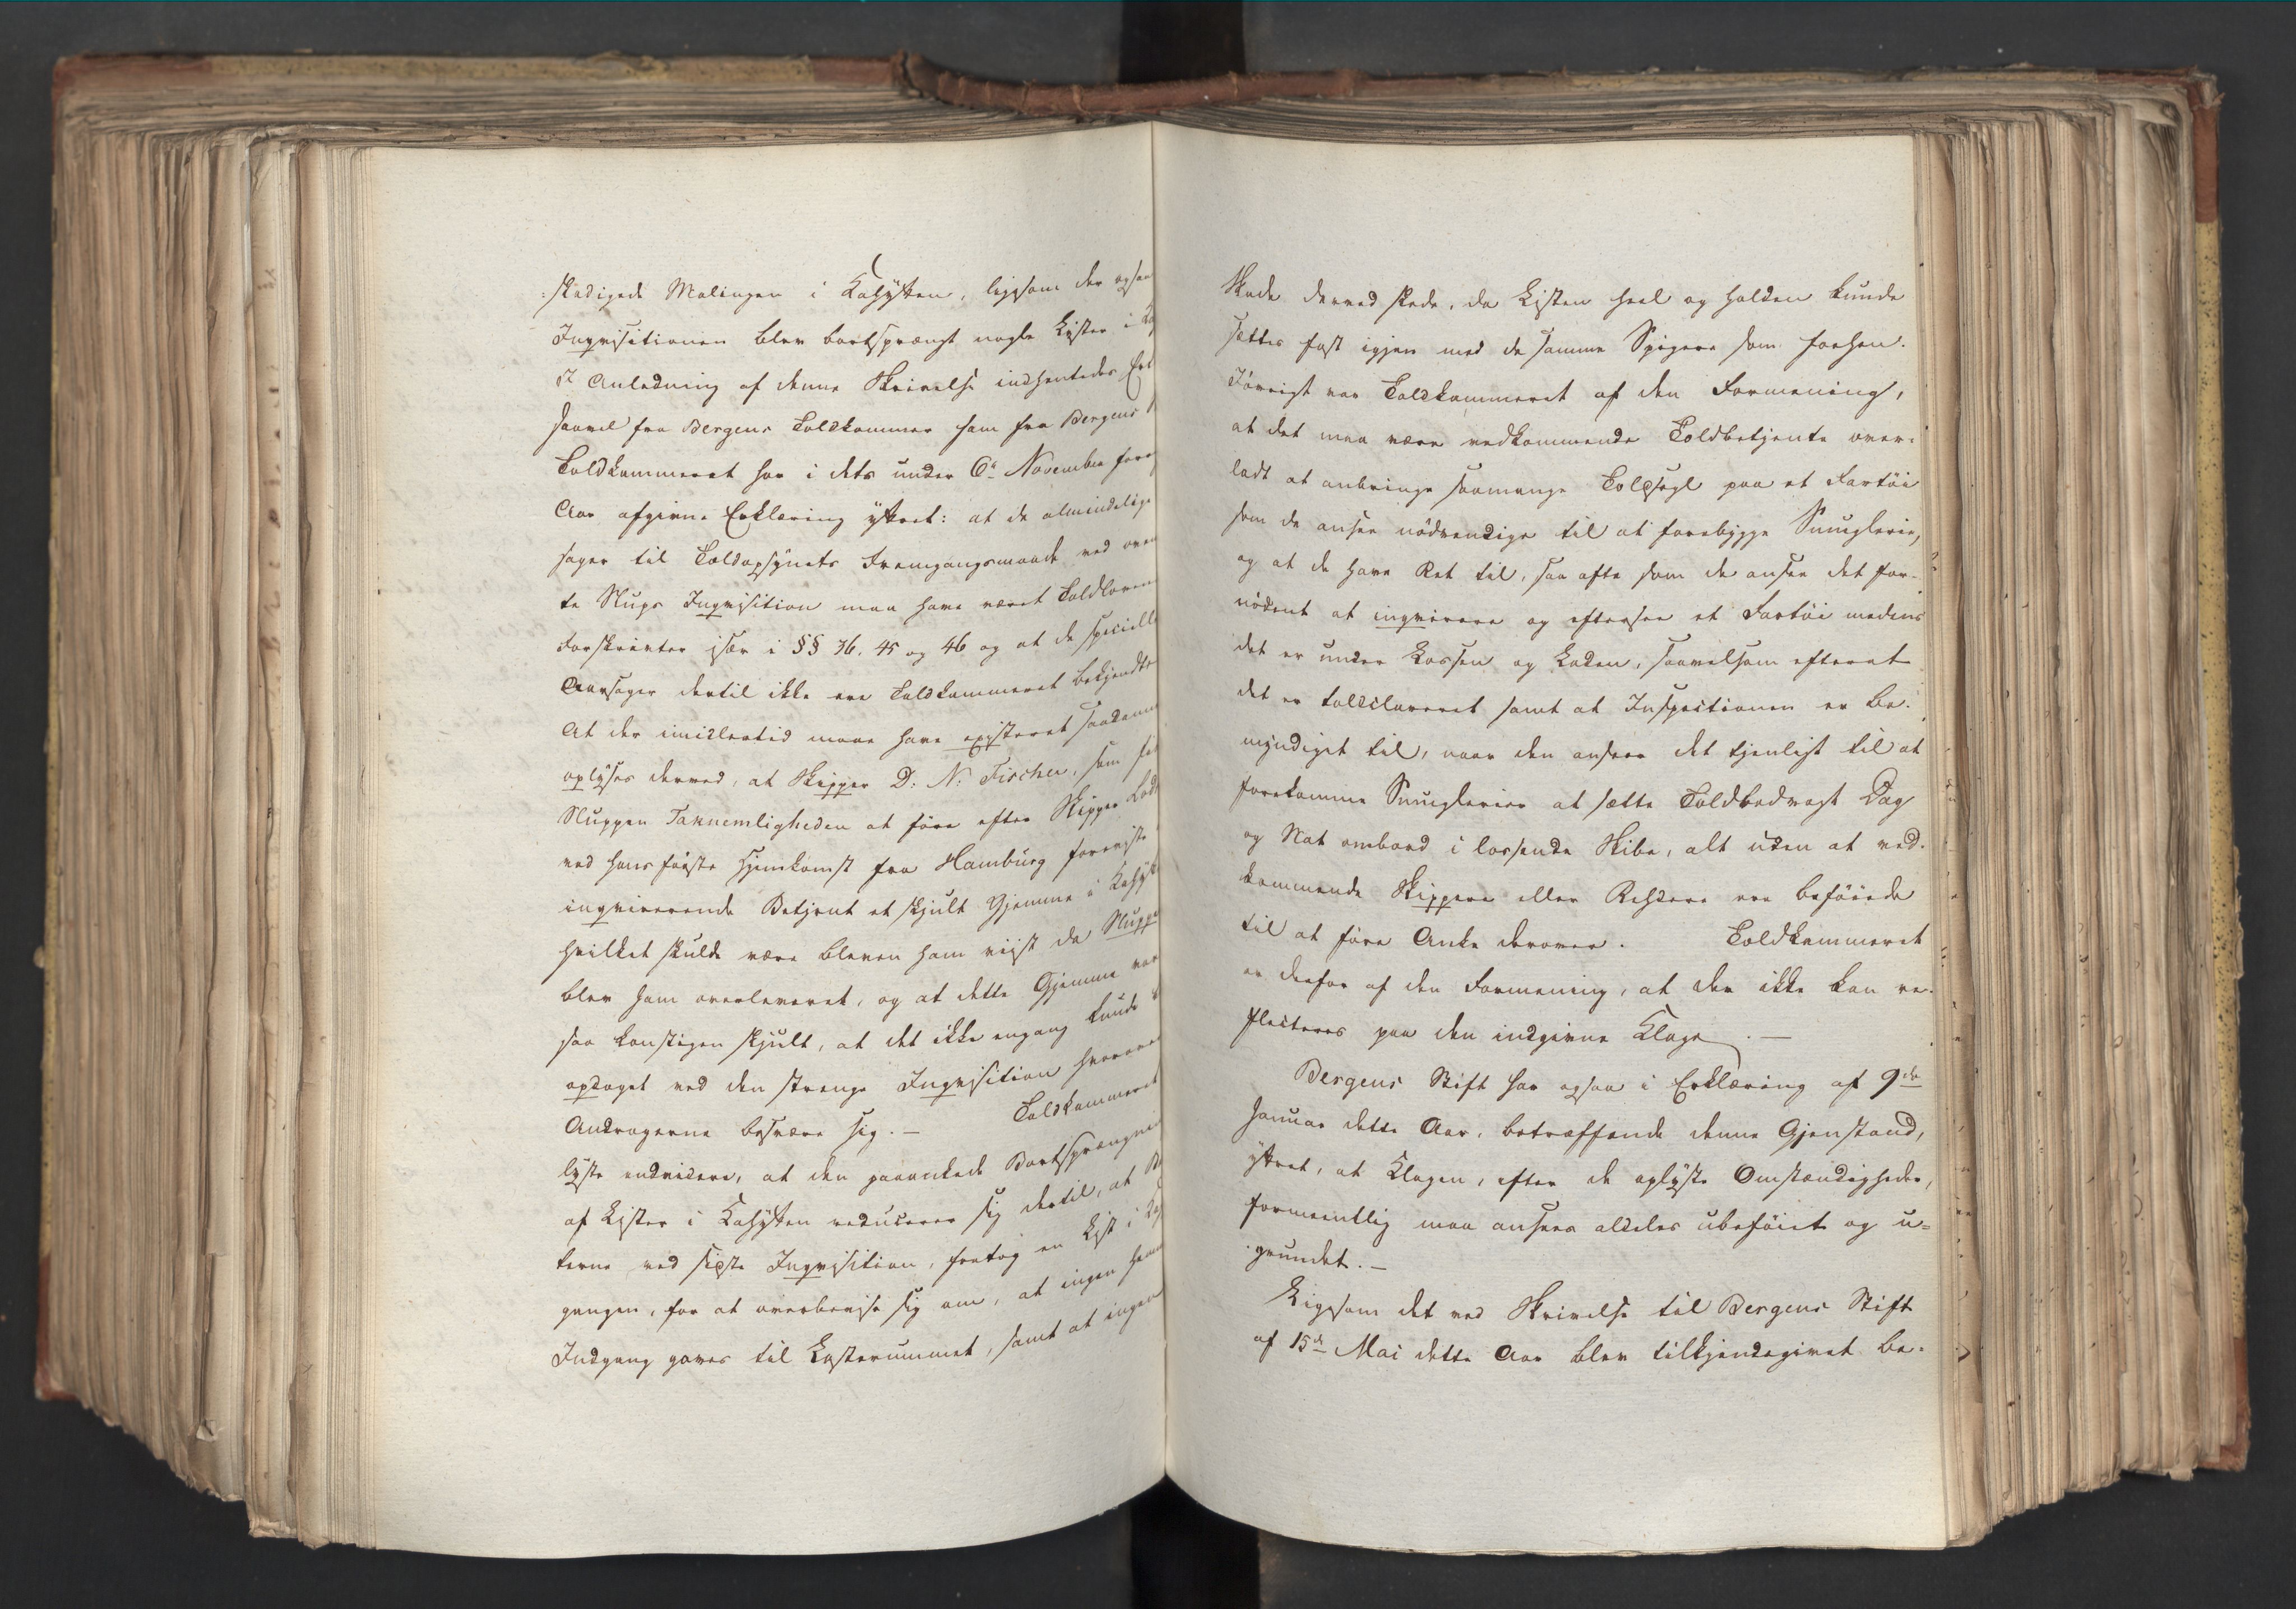 skadigede Malingen i Kahytten, ligesom der ogsaa
Inqvisitionen blev bortsprængt nogle Lister i
Anledning af denne Skrivelse indhentedes
saavel fra Bergens Toldkammer som fra Bergens
Toldkammeret har i dets under 6te November forr
Aar afgivne Erklæring yttret: at de almindelige
sager til Toldopsynets Fremgangsmaade ved oven
te Slups Inqvisition maa have været Toldloven
Forskrivter især i §§ 36, 45 og 46 og at de specielle
Aarsager dertil ikke ere Toldkammeret bekjendte
At der imidlertid maae have existeret saadanne
oplyses derved, at Skipper D: N: Fischer, som fik
Sluppen Taknemligheden at føre efter Skipper
ved hans første Hjemkomst fra Hamburg foreviste
inqvirerende Betjent et skjult Gjemme i Kahyt
hvilket skulde være bleven ham viist da Sluppe
blev ham overleveret, og at dette Gjemme var
saa konstigen skjult, at det ikke engang kunde
opdaget ved den strenge Inqvisition hvorover
Andragerne besvære sig. — Toldkammeret
lyste endvidere, at den paaankede Bortsprængni
af Lister i Kahytten reducerer sig dertil, at B
terne ved sidste Inqvisition, fratog en List i
gangen, for at overbevise sig om, at ingen hem
Indgang gaves til Lasterummet, samt at ingen
Skade derved skede, da Listen heel og holden kunde
sættes fast igjen med de samme Spigere som forhen.
Iøvrigt var Toldkammeret af den Formening,
at det maa være vedkommende Toldbetjente over-
ladt at anbringe saamange Toldsegl paa et Fartøi
som de ansee nødvendige til at forebygge Smuglerie,
og at de have Ret til, saa ofte som de ansee det for-
nødent at inqvirere og eftersee et Fartøi medens
det er under Lossen og Laden, saavelsom efterat
det er toldclareret samt at Inspectionen er be-
myndiget til, naar den ansees det tjenligt til at
forekomme Smuglerier at sætte Toldbodvagt Dag
og Nat ombord i lossende Skibe, alt uden at ved-
kommende Skippere eller Rehdere ere beføiede
til at føre Anke derover. Toldkammeret
er derfor af den Formening, at der ikke kan re-
flecteres paa den indgivne Klage. —
Bergens Stift har ogsaa i Erklæring af 9de
Januar dette Aar, betræffende denne Gjenstand,
yttret, at Klagen, efter de oplyste Omstændigheder,
formeentlig maa ansees aldeles ubeføiet og u-
grundet. —
Ligesom det ved Skrivelse til Bergens Stift
af 15de Mai dette Aar blev tilkjendegivet be-